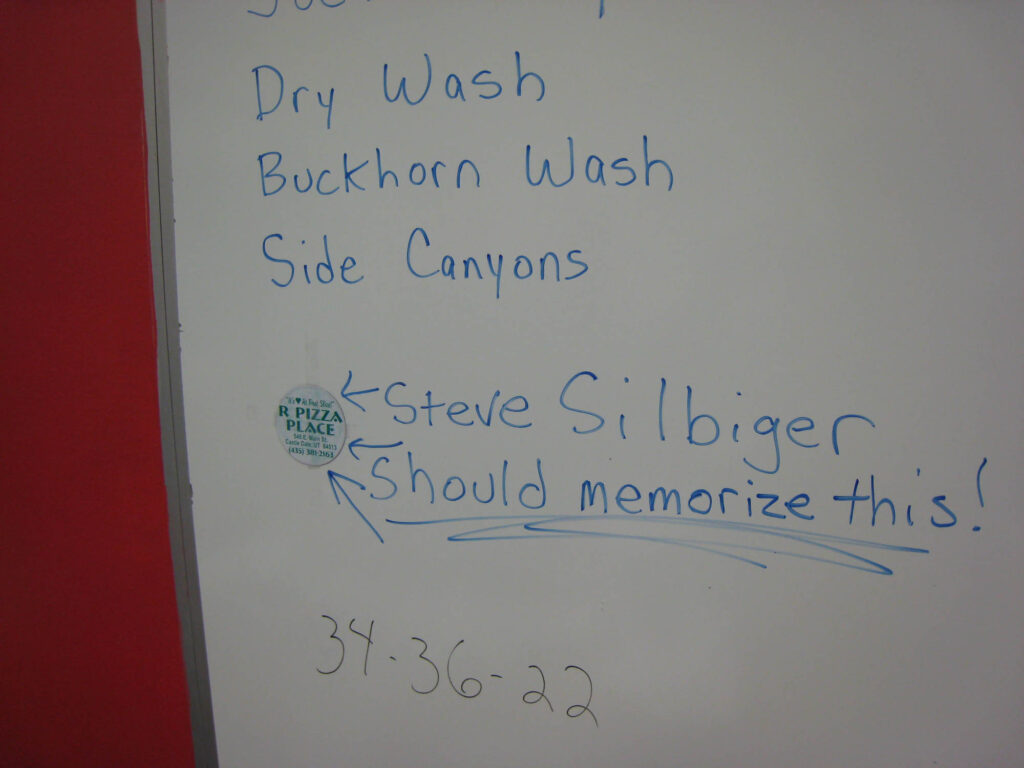 Dry Wash
Buckhorn Wash
Side Canyons
"It's ♥ At First Slice!"
R PIZZA
PLACE
Castle Dale, UT 84513
(435) 381-2163
← Steve Silbiger
← Should memorize this!
34-36-22